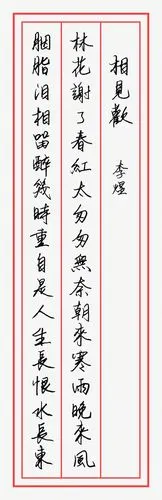 相見歡 李煜
林花謝了春紅太匆匆無奈朝來寒雨晚來風
胭脂泪相留醉幾時重自是人生長恨水長東